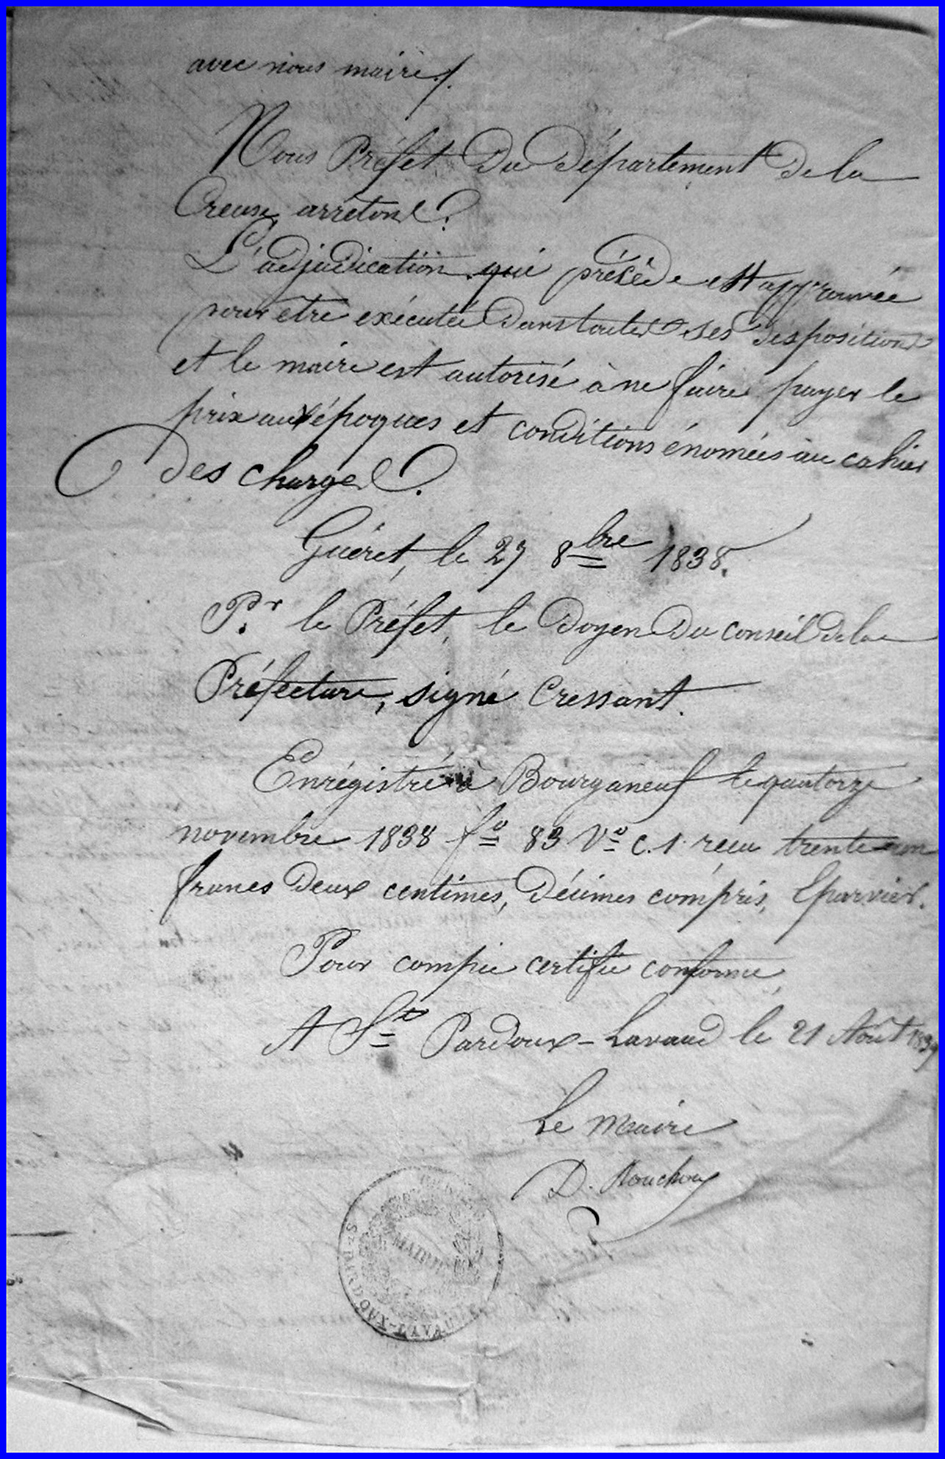 avec nous maire./.
Nous Préfet Du Département De la
Creuse, arretons.
L'adjudication qui précède est approuvée
pour être exécutée Dans toutes ses Dispositions
et le maire est autorisé à ne faire payer le
prix aux époques et conditions énomées au cahier
Des charges.
Guéret, le 27 8bre 1838.
Pr le Préfet, le Doyen Du conseil De la
Préfecture, signé Cressant.
Enrégistré à Bourganeuf le quatorze
novembre 1838 fo 83 Vo c. 1 recu trente un
francs Deux centimes, Décimes compris,
Pour compie certifié conforme,
A St Pardoux-Lavaud le 21 Août
Le Maire
D.
MAIRIE
St PARDOUX-LAVAUD